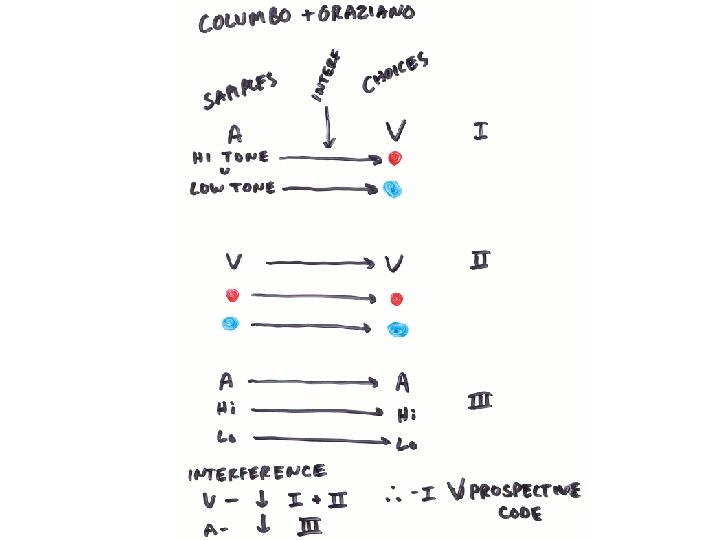 COLUMBO + GRAZIANO
SAMPLES INTERF CHOICES
A V I
HI TONE
v
LOW TONE
V V II
A A III
Hi Hi
Lo Lo
INTERFERENCE
V - ↓ I + II ∴ - I V PROSPECTIVE CODE
A - ↓ III